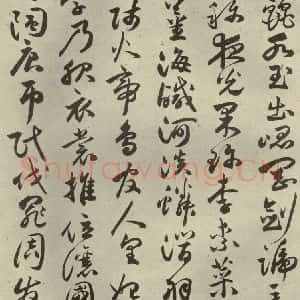 麗水玉出崑岡劍號巨
稱夜光果珍李柰菜
薑海鹹河淡鱗潛羽
師火帝鳥官人皇始
字乃服衣裳推位讓國
陶唐弔民伐罪周發
Shufawang.Cn